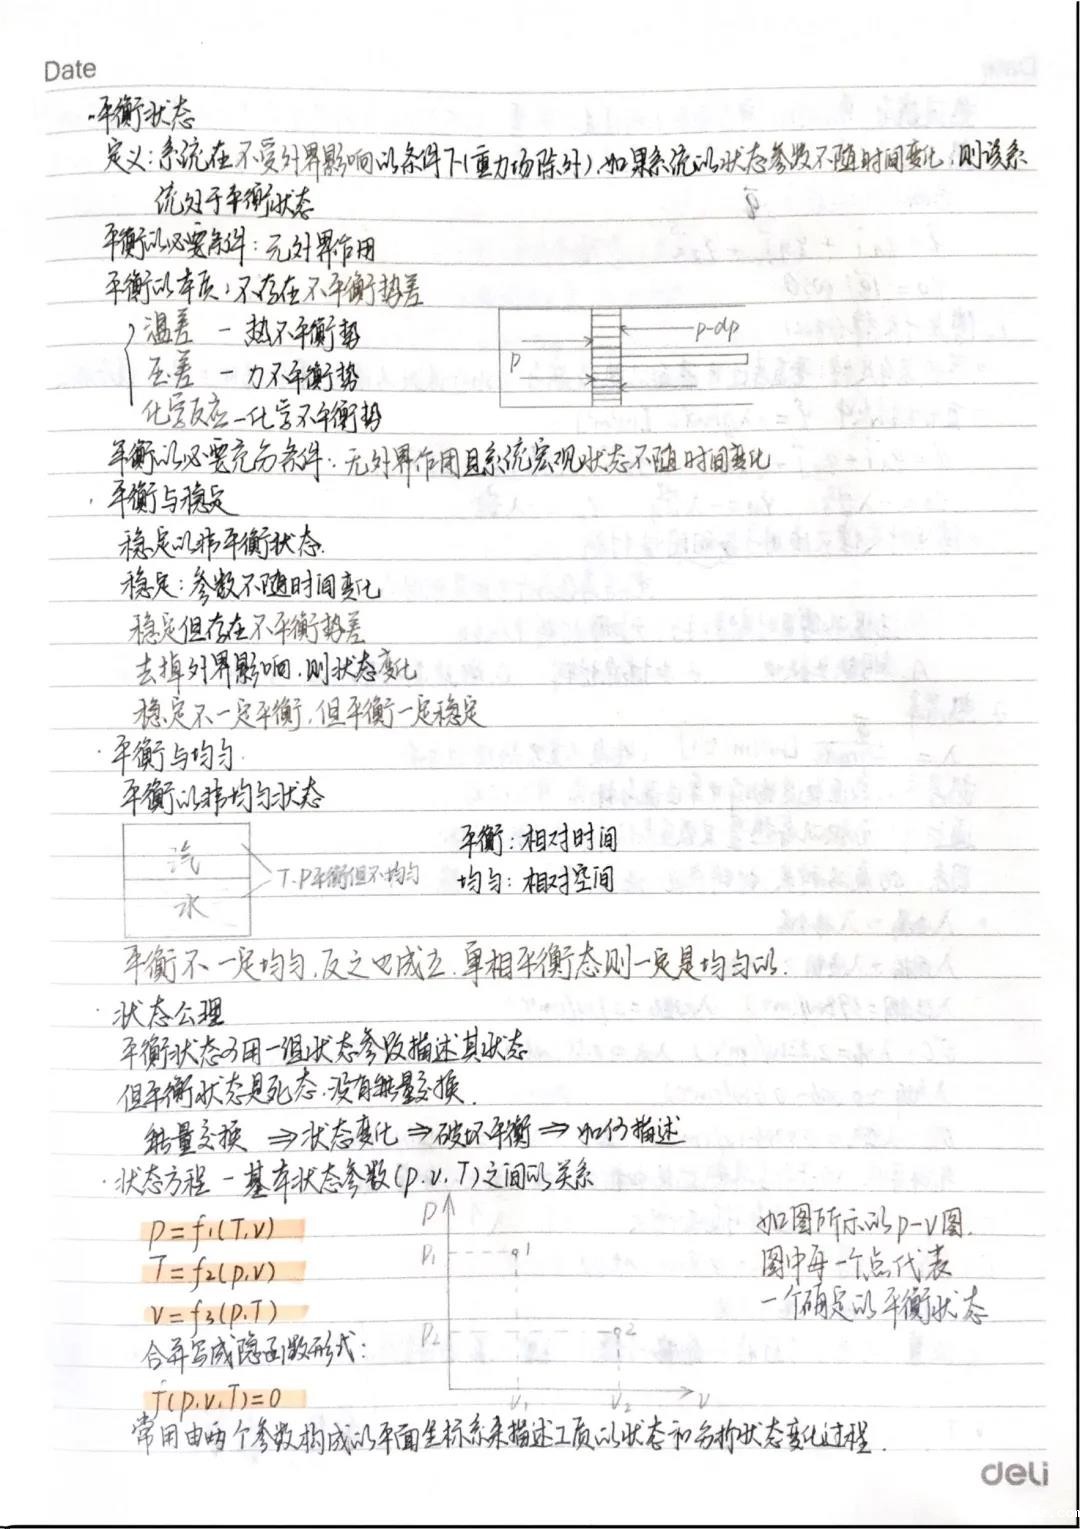 Date
·平衡状态
定义:系统在不受外界影响的条件下(重力场除外),如果系统的状态参数不随时间变化,则该系
统处于平衡状态
平衡的必要条件:无外界作用
平衡的本质:不存在不平衡势差
温差 — 热不平衡势
压差 — 力不平衡势
化学反应—化学不平衡势
p
p-dp
平衡的必要充分条件:无外界作用且系统宏观状态不随时间变化
·平衡与稳定
稳定的非平衡状态.
稳定:参数不随时间变化
稳定但存在不平衡势差
去掉外界影响,则状态变化
稳定不一定平衡,但平衡一定稳定
·平衡与均匀.
平衡的非均匀状态
汽
水
T.P平衡但不均匀
平衡:相对时间
均匀:相对空间
平衡不一定均匀,反之也成立.单相平衡态则一定是均匀的.
·状态公理
平衡状态可用一组状态参数描述其状态
但平衡状态是死态,没有能量交换.
能量交换 ⇒状态变化⇒破坏平衡⇒如何描述
·状态方程 — 基本状态参数(p.v.T)之间的关系
p=f₁(T,v)
T=f₂(p,v)
v=f₃(p,T)
合并写成隐函数形式:
f(p,v,T)=0
p
p₁
1
p₂
2
v₁
v₂
v
如图所示的p-v图.
图中每一个点代表
一个确定的平衡状态
常用由两个参数构成的平面坐标系来描述工质的状态和分析状态变化过程.
deli